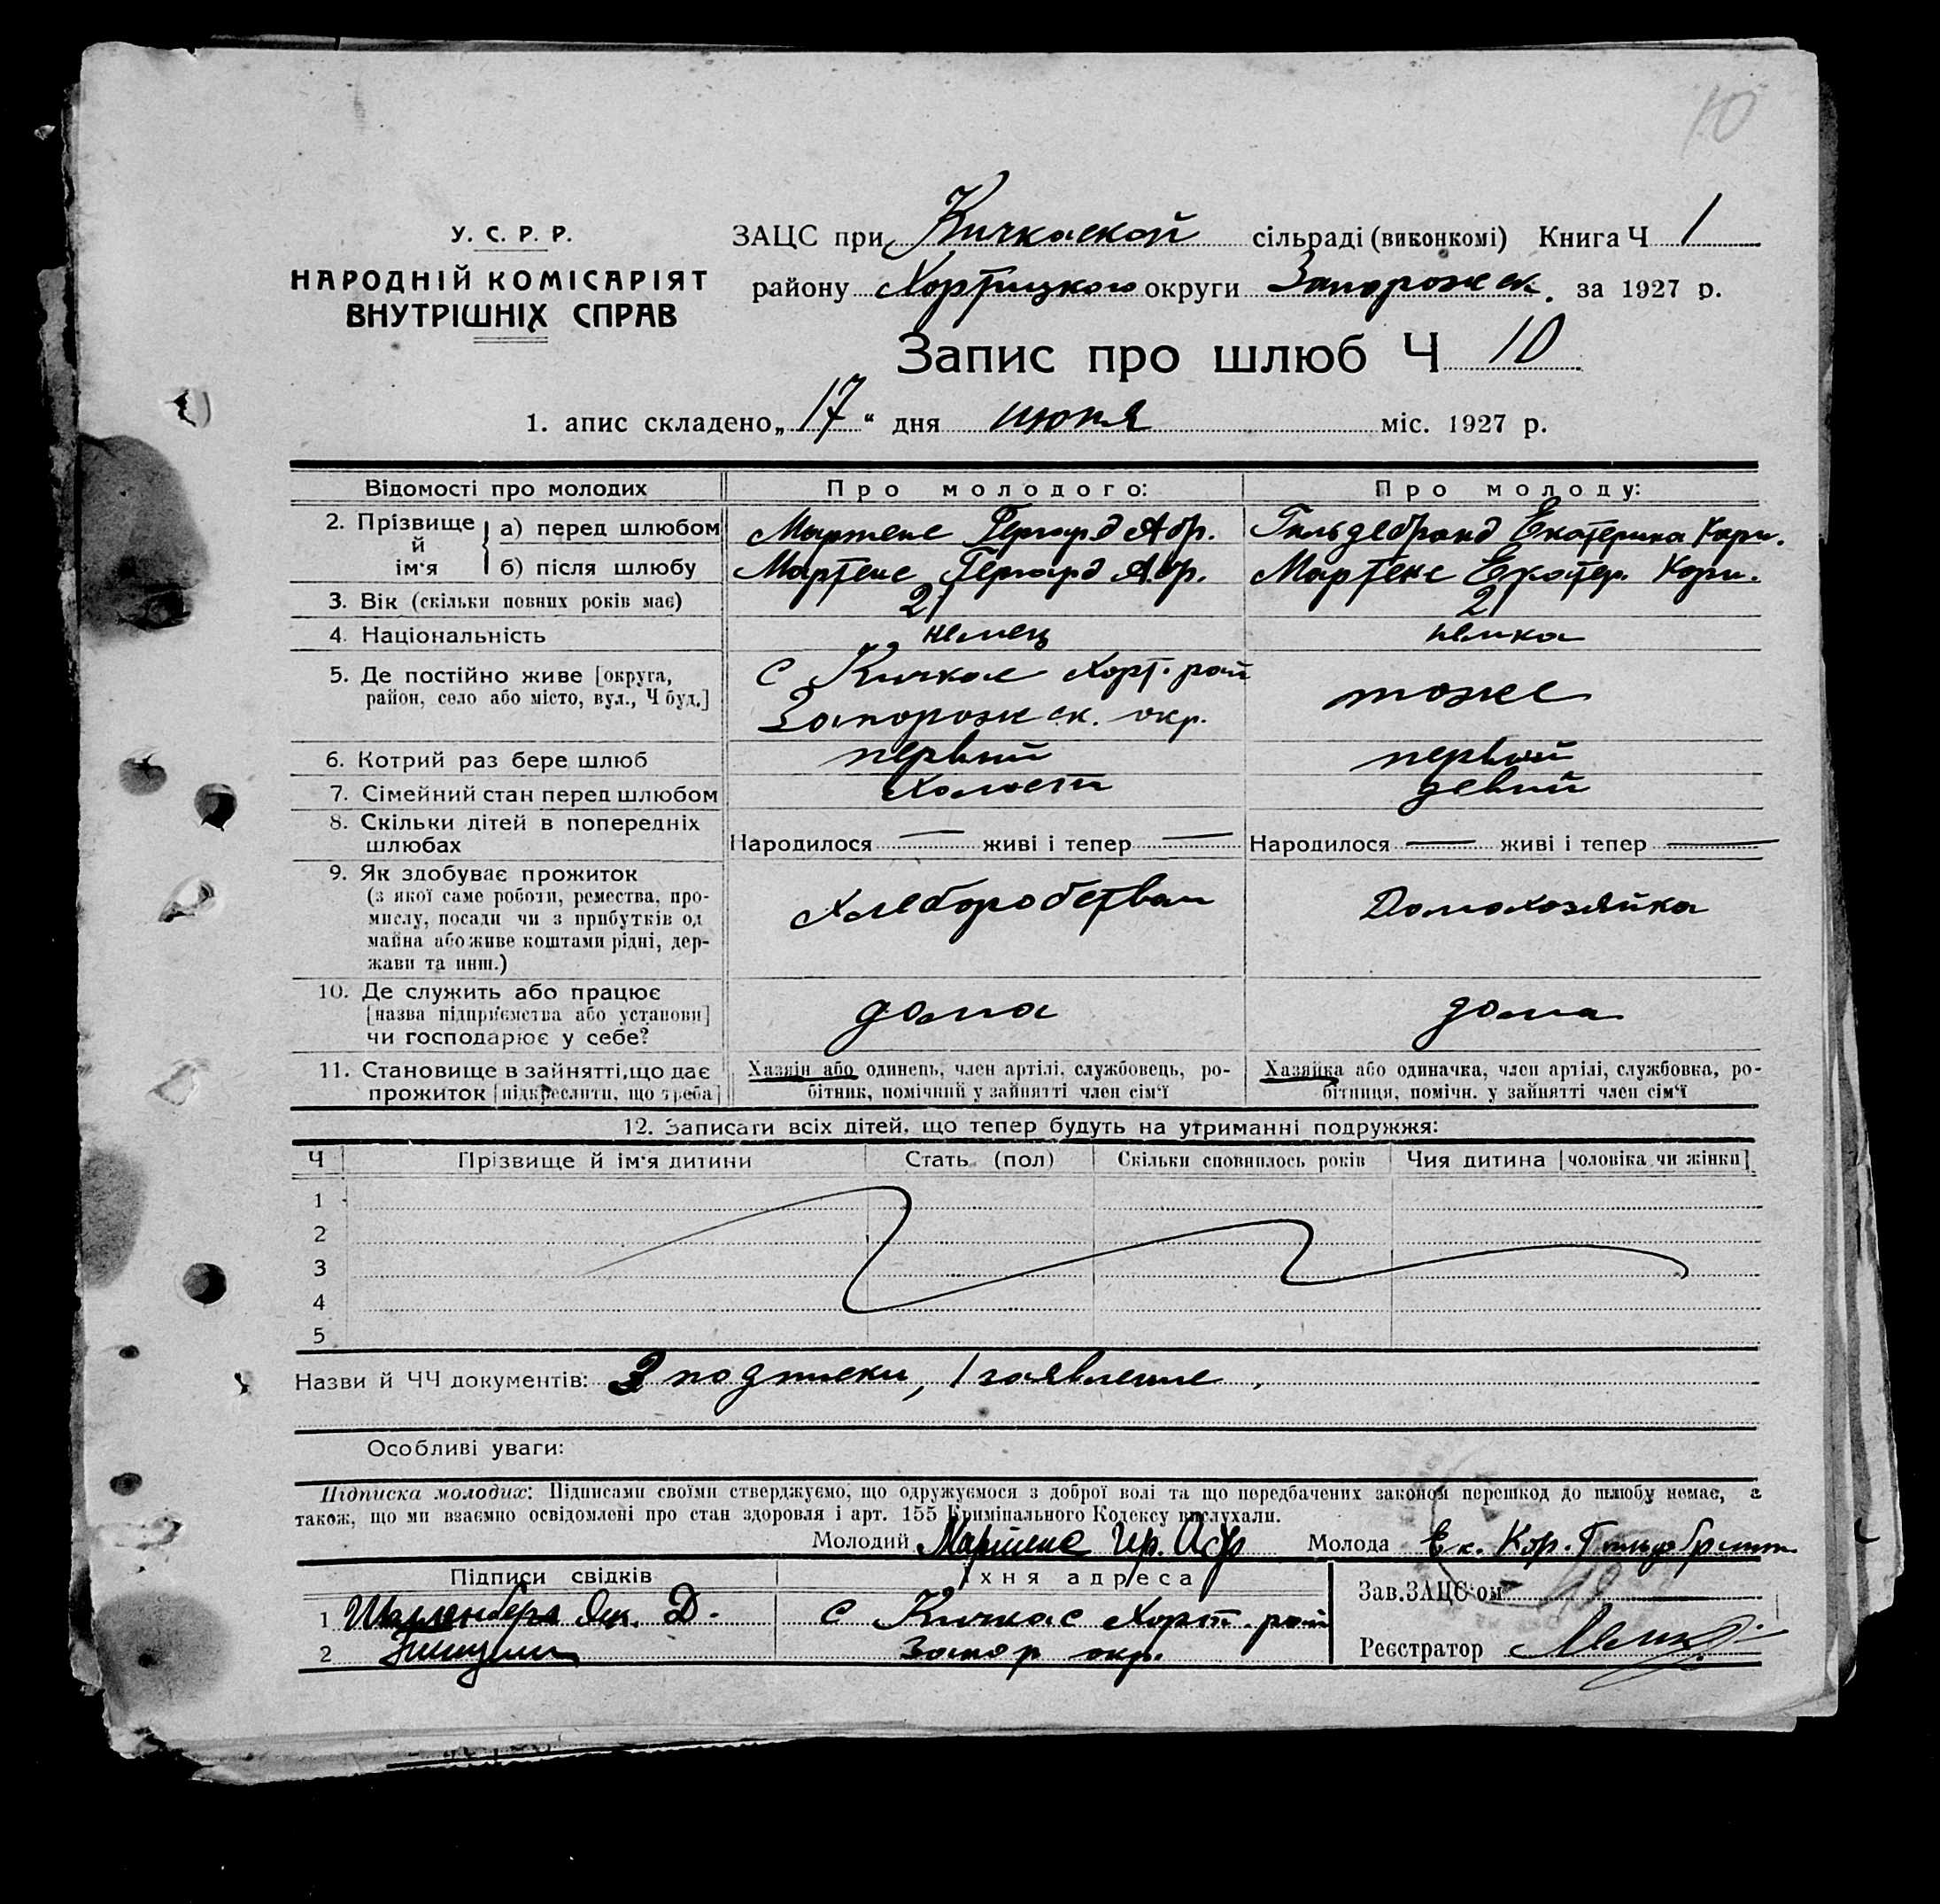 10
У. С. Р. Р.
НАРОДНІЙ КОМІСАРІЯТ
ВНУТРІШНІХ СПРАВ
ЗАЦС при Кичкаской сільраді (виконкомі) Книга Ч 1
району Хортицкого округи Запорожск. за 1927 р.
Запис про шлюб Ч 10
1. апис складено „ 17 “ дня июня міс. 1927 р.
Відомості про молодих Про молодого: Про молоду:
2. Прізвище й ім'я а) перед шлюбом Мартенс Гергард Абр. Гильдебранд Екатерина Корн.
б) після шлюбу Мартенс Гергард Абр. Мартенс Екатер. Корн.
3. Вік (скільки повних років має) 21 21
4. Національність немец немка
5. Де постійно живе [округа, район, село або місто, вул., Ч буд.] с Кичкас Хорт. рай Запорожск. окр. тоже
6. Котрий раз бере шлюб первий первий
7. Сімейний стан перед шлюбом Холост девий
8. Скільки дітей в попередніх шлюбах Народилося — живі і тепер — Народилося — живі і тепер —
9. Як здобуває прожиток
(з якої саме роботи, ремества, про-
мислу, посади чи з прибутків од
майна або живе коштами рідні, дер-
жави та инш.) Хлеборобством Домохозяйка
10. Де служить або працює
[назва підприємства або установи]
чи господарює у себе? дома дома
11. Становище в зайнятті, що дає
прожиток [підкреслити, що треба]
Хазяін або одинець, член артілі, службовець, ро-
бітник, помічний у зайнятті член сім'ї
Хазяйка або одиначка, член артілі, службовка, ро-
бітниця, помічн. у зайнятті член сім'ї
12. Записати всіх дітей, що тепер будуть на утриманні подружжя:
Ч Прізвище й ім'я дитини Стать (пол) Скільки сповнилось років Чия дитина [чоловіка чи жінки]
1
2
3
4
5
Назви й ЧЧ документів: 3 подписки, 1 заявление.
Особливі уваги:
Підписка молодих: Підписами своїми стверджуємо, що одружуємося з доброї волі та що передбачених законом перешкод до шлюбу немає, а
також, що ми взаємно освідомлені про стан здоровля і арт. 155 Кримінального Кодексу вислухали.
Молодий Мартенс Гер. Абр Молода Ек. Кор. Гильдебранд
Підписи свідків Їхня адреса Зав. ЗАЦС'ом
1 Як. Д. с Кичкас Хорт. рай
2 Запор окр. Реєстратор